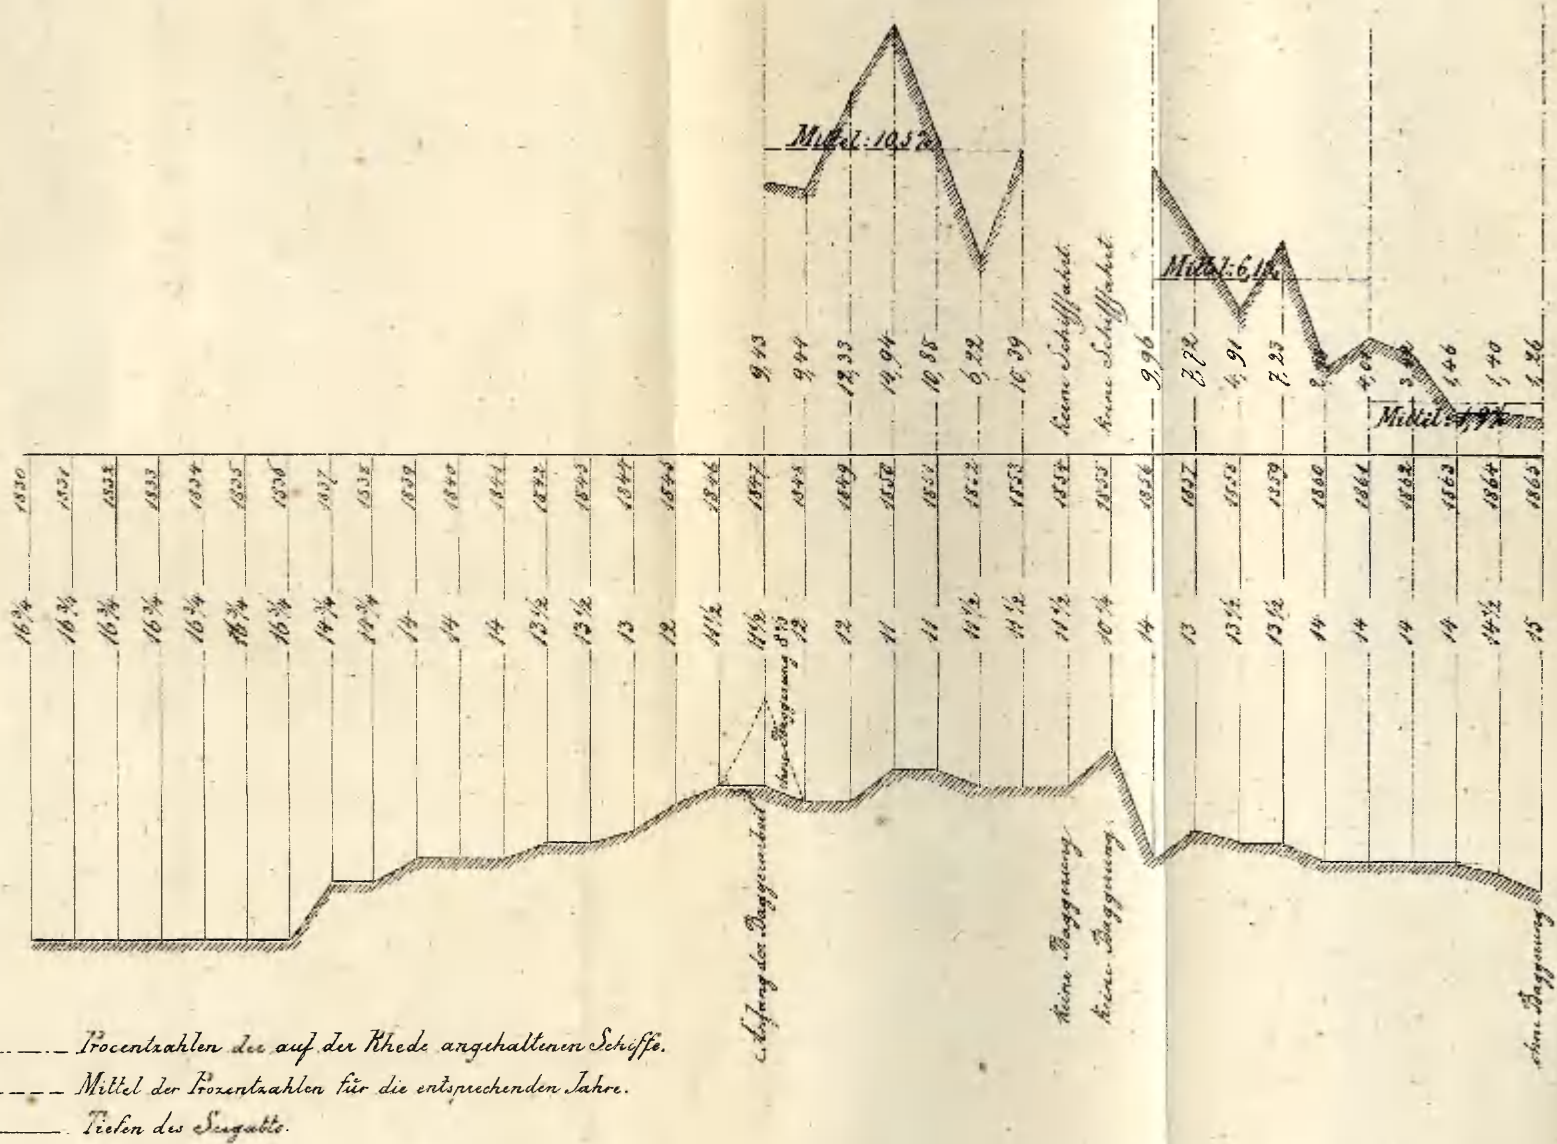 Mittel: 10,5%
Mittel: 6,1%
Mittel: 1,9%
9,43
9,44
12,33
14,94
10,88
6,22
10,39
keine Schifffahrt.
keine Schifffahrt.
9,96
7,72
4,91
7,23
4,01
1,46
1,40
1,26
1830
1831
1832
1833
1834
1835
1836
1837
1838
1839
1840
1841
1842
1843
1844
1845
1846
1847
1848
1849
1850
1851
1852
1853
1854
1855
1856
1857
1858
1859
1860
1861
1862
1863
1864
1865
16 3/4
16 3/4
16 3/4
16 3/4
16 3/4
16 3/4
16 3/4
14 3/4
14 3/4
14
14
14
13 1/2
13 1/2
13
12
11 1/2
11 1/2
ohne Baggerung
12
12
11
11
11 1/2
11 1/2
11 1/2
10 1/4
14
13
13 1/2
13 1/2
14
14
14
14
14 1/2
15
Anfang der Baggerarbeit
keine Baggerung
keine Baggerung.
ohne Baggerung
Procentzahlen der auf der Rhede angehaltenen Schiffe.
Mittel der Prozentzahlen für die entsprechenden Jahre.
Tiefen des Seegatts.